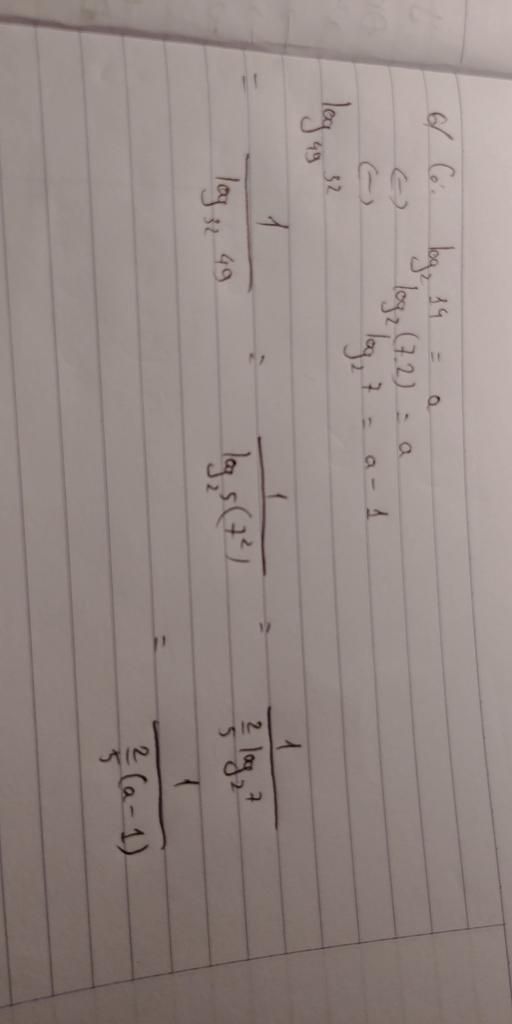 6/ Có: log₂ 14 = a
(=) log₂ (7.2) = a
(=) log₂ 7 = a - 1
log₄₉ 32
= 1/(log₃₂ 49) = 1/(log₂5 (7²)) = 1/(2/5 log₂ 7)
= 1/(2/5 (a - 1))